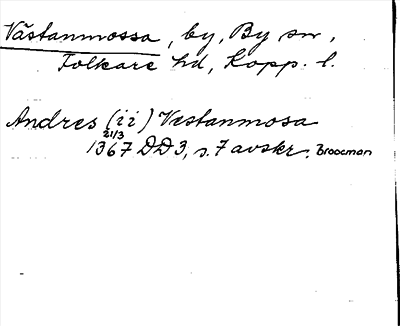 Västanmossa, by, By sn,
Folkare hd, Kopp. l.
Andres (i i) Vestanmosa
21/3
1367 DD3, s. 7 avskr. Broocman